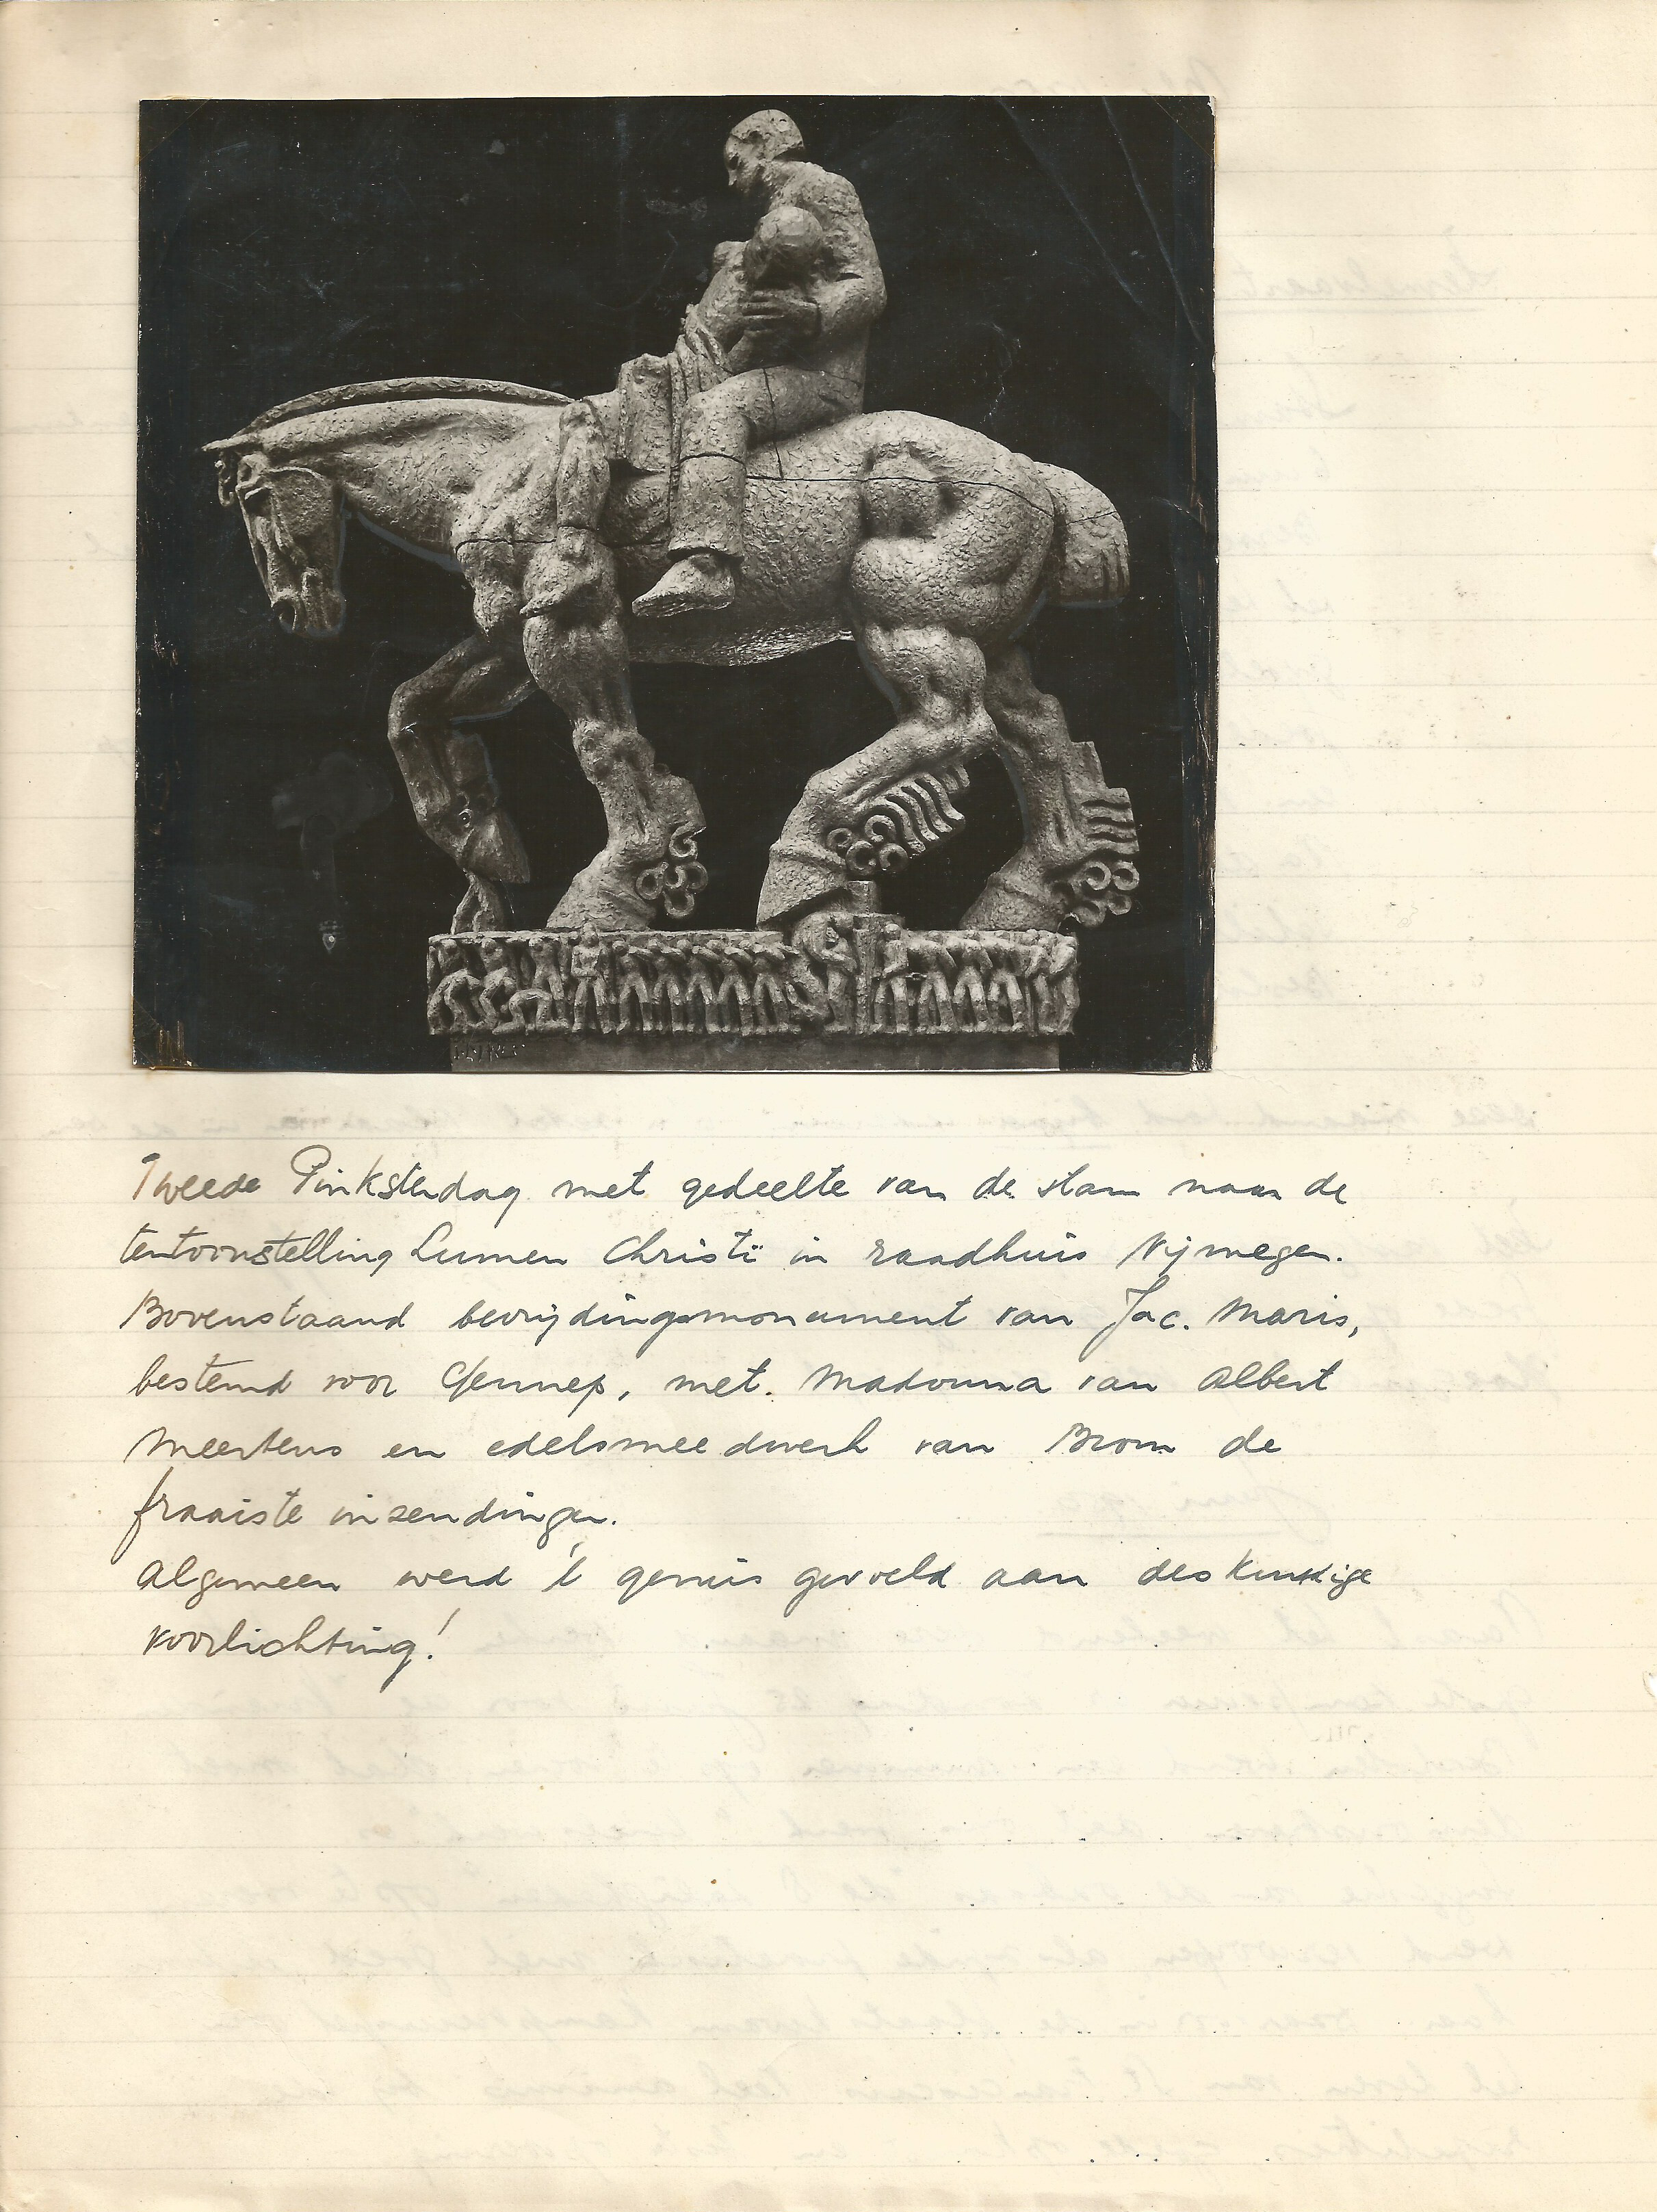 Tweede Pinksterdag met gedeelte van de stam naar de
tentoonstelling Lumen Christi in raadhuis Nijmegen.
Bovenstaand bevrijdingsmonument van Jac. Maris,
bestemd voor Gennep, met. Madonna van Albert
Meertens en edelsmeedwerk van Brom de
fraaiste inzendingen.
Algemeen werd 't gemis gevoeld aan deskundige
voorlichting!